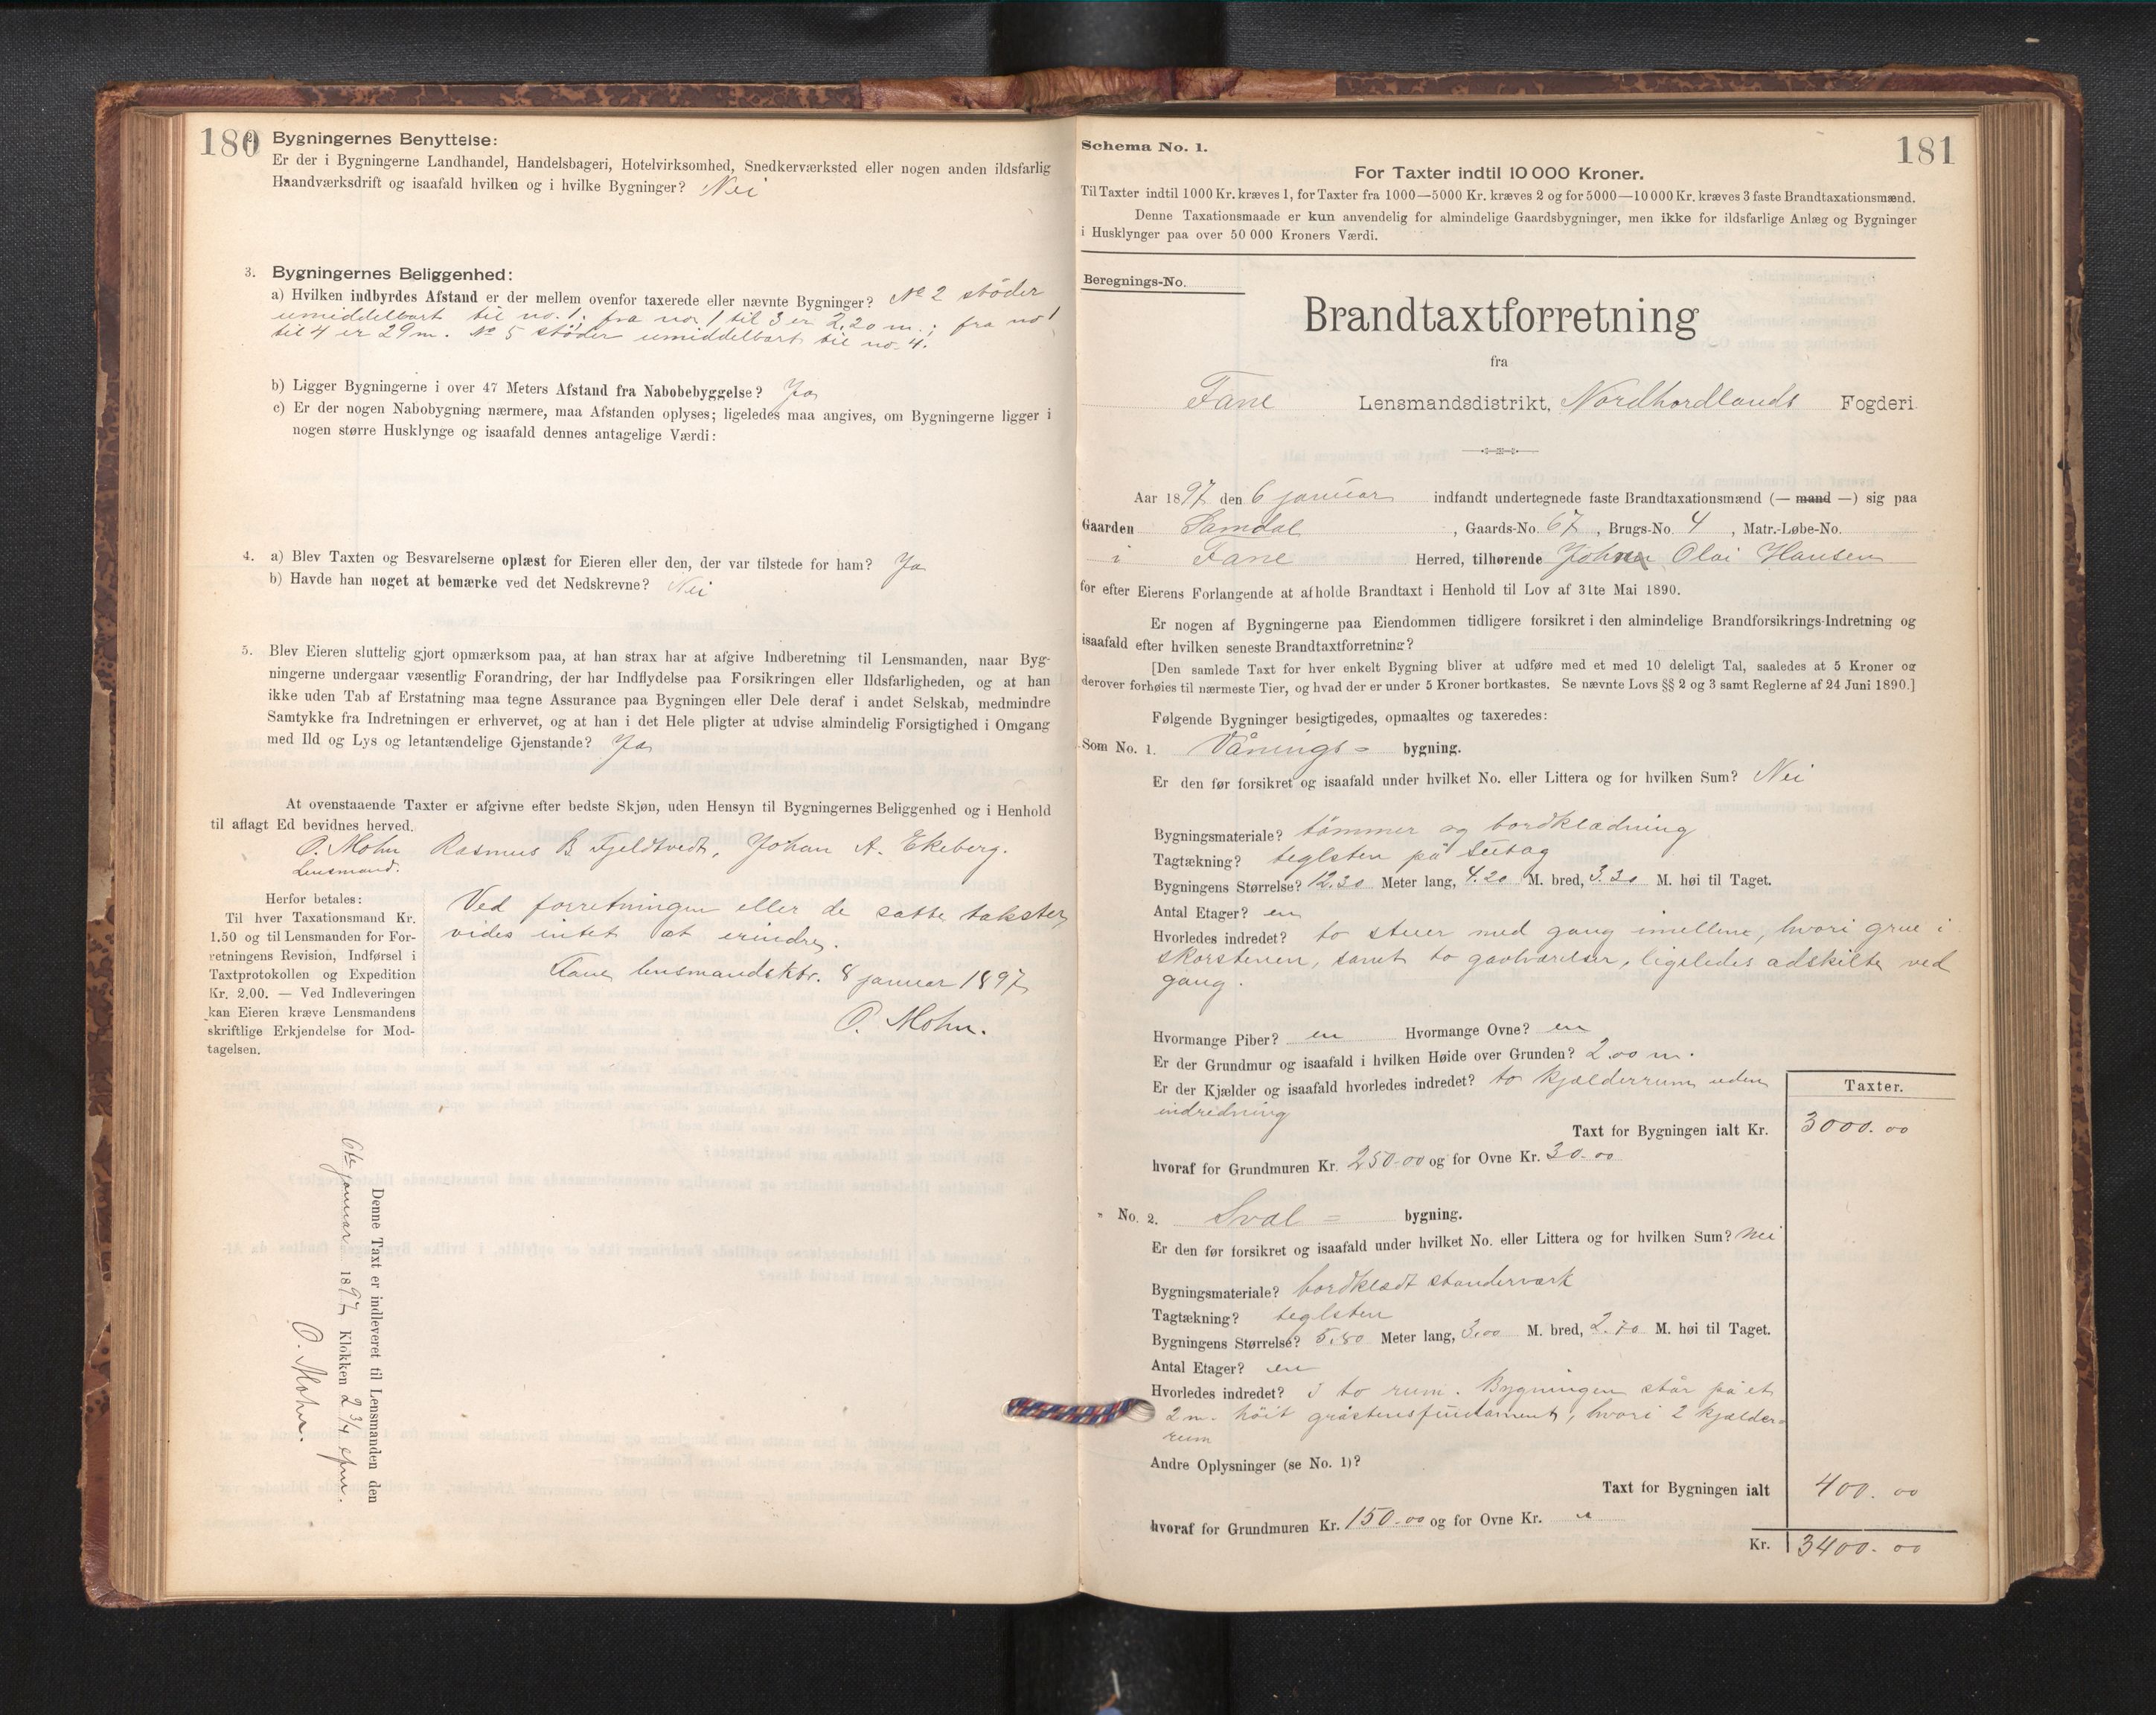 180
2. Bygningernes Benyttelse:
Er der i Bygningerne Landhandel, Handelsbageri, Hotelvirksomhed, Snedkerværksted eller nogen anden ildsfarlig
Haandværksdrift og isaafald hvilken og i hvilke Bygninger? Nei
3. Bygningernes Beliggenhed:
a) Hvilken indbyrdes Afstand er der mellem ovenfor taxerede eller nævnte Bygninger? No 2 stöder
umiddelbart til no. 1; fra no 1 til 3 er 2,20 m.; fra no 1
til 4 er 29 m. No 5 stöder umiddelbart til no. 4.
b) Ligger Bygningerne i over 47 Meters Afstand fra Nabobebyggelse? Ja
c) Er der nogen Nabobygning nærmere, maa Afstanden oplyses; ligeledes maa angives, om Bygningerne ligger i
nogen større Husklynge og isaafald dennes antagelige Værdi:
4. a) Blev Taxten og Besvarelserne oplæst for Eieren eller den, der var tilstede for ham? Ja
b) Havde han noget at bemærke ved det Nedskrevne? Nei
5. Blev Eieren sluttelig gjort opmærksom paa, at han strax har at afgive Indberetning til Lensmanden, naar Byg-
ningerne undergaar væsentlig Forandring, der har Indflydelse paa Forsikringen eller Ildsfarligheden, og at han
ikke uden Tab af Erstatning maa tegne Assurance paa Bygningen eller Dele deraf i andet Selskab, medmindre
Samtykke fra Indretningen er erhvervet, og at han i det Hele pligter at udvise almindelig Forsigtighed i Omgang
med Ild og Lys og letantændelige Gjenstande? Ja
At ovenstaaende Taxter er afgivne efter bedste Skjøn, uden Hensyn til Bygningernes Beliggenhed og i Henhold
til aflagt Ed bevidnes herved.
O. Mohn Rasmus B Fjeldtvedt, Johan A. Ekeberg.
Lensmand.
Herfor betales:
Til hver Taxationsmand Kr.
1.50 og til Lensmanden for For-
retningens Revision, Indførsel i
Taxtprotokollen og Expedition
Kr. 2.00. — Ved Indleveringen
kan Eieren kræve Lensmandens
skriftlige Erkjendelse for Mod-
tagelsen.
Ved forretningen eller de satte takster
vides intet at erindre.
Fane lensmandsktr. 8 januar 1897
O. Mohn.
Denne Taxt er indleveret til Lensmanden den
6te januar 1897 Klokken 2 3/4 efm.
O. Mohn.
181
Schema No. 1.
For Taxter indtil 10 000 Kroner.
Til Taxter indtil 1000 Kr. kræves 1, for Taxter fra 1000—5000 Kr. kræves 2 og for 5000—10 000 Kr. kræves 3 faste Brandtaxationsmænd.
Denne Taxationsmaade er kun anvendelig for almindelige Gaardsbygninger, men ikke for ildsfarlige Anlæg og Bygninger
i Husklynger paa over 50 000 Kroners Værdi.
Beregnings-No.
Brandtaxtforretning
fra
Fane Lensmandsdistrikt, Nordhordlands Fogderi
Aar 1897 den 6 januar indfandt undertegnede faste Brandtaxationsmænd (— mand —) sig paa
Gaarden Samdal, Gaards-No. 67, Brugs-No. 4, Matr.-Løbe-No.
i Fane Herred, tilhørende Johan Olai Hansen
for efter Eierens Forlangende at afholde Brandtaxt i Henhold til Lov af 31te Mai 1890.
Er nogen af Bygningerne paa Eiendommen tidligere forsikret i den almindelige Brandforsikrings-Indretning og
isaafald efter hvilken seneste Brandtaxtforretning?
[Den samlede Taxt for hver enkelt Bygning bliver at udføre med et med 10 deleligt Tal, saaledes at 5 Kroner og
derover forhøies til nærmeste Tier, og hvad der er under 5 Kroner bortkastes. Se nævnte Lovs §§ 2 og 3 samt Reglerne af 24 Juni 1890.]
Følgende Bygninger besigtigedes, opmaaltes og taxeredes:
Som No. 1. Vånings= bygning.
Er den før forsikret og isaafald under hvilket No. eller Littera og for hvilken Sum? Nei
Bygningsmateriale? tömmer og bordklædning
Tagtækning? teglsten på sutag
Bygningens Størrelse? 12.30 Meter lang, 4.20 M. bred, 3.30 M. høi til Taget.
Antal Etager? en
Hvorledes indredet? to stuer med gang imellem, hvori grue i
skorstenen, samt to gavlværelser, ligeledes adskilte ved
gang.
Hvormange Piber? en Hvormange Ovne? en
Er der Grundmur og isaafald i hvilken Høide over Grunden? 2.00 m.
Er der Kjælder og isaafald hvorledes indredet? to kjælderrum uden
indredning
Taxter.
Taxt for Bygningen ialt Kr. 3000.00
hvoraf for Grundmuren Kr. 250.00 og for Ovne Kr. 30.00
" No. 2. Sval= bygning.
Er den før forsikret og isaafald under hvilket No. eller Littera og for hvilken Sum? Nei
Bygningsmateriale? bordklædt standerværk
Tagtækning? teglsten
Bygningens Størrelse? 5.80 Meter lang, 3.00 M. bred, 2.70 M. høi til Taget.
Antal Etager? en
Hvorledes indredet? I to rum. Bygningen står på et
2 m. höit gråstensfundament, hvori 2 kjælder=
rum
Andre Oplysninger (se No. 1)?
Taxt for Bygningen ialt 400.00
hvoraf for Grundmuren Kr. 150.00 og for Ovne Kr. "
Kr. 3400.00